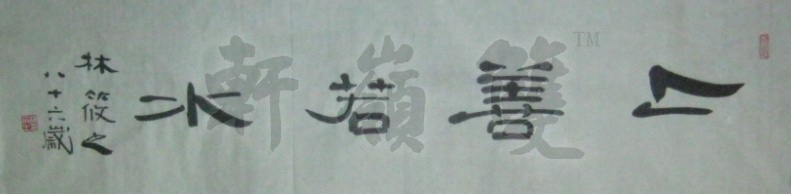 上善若水
林筱之
八十六歲
雙嶺軒™